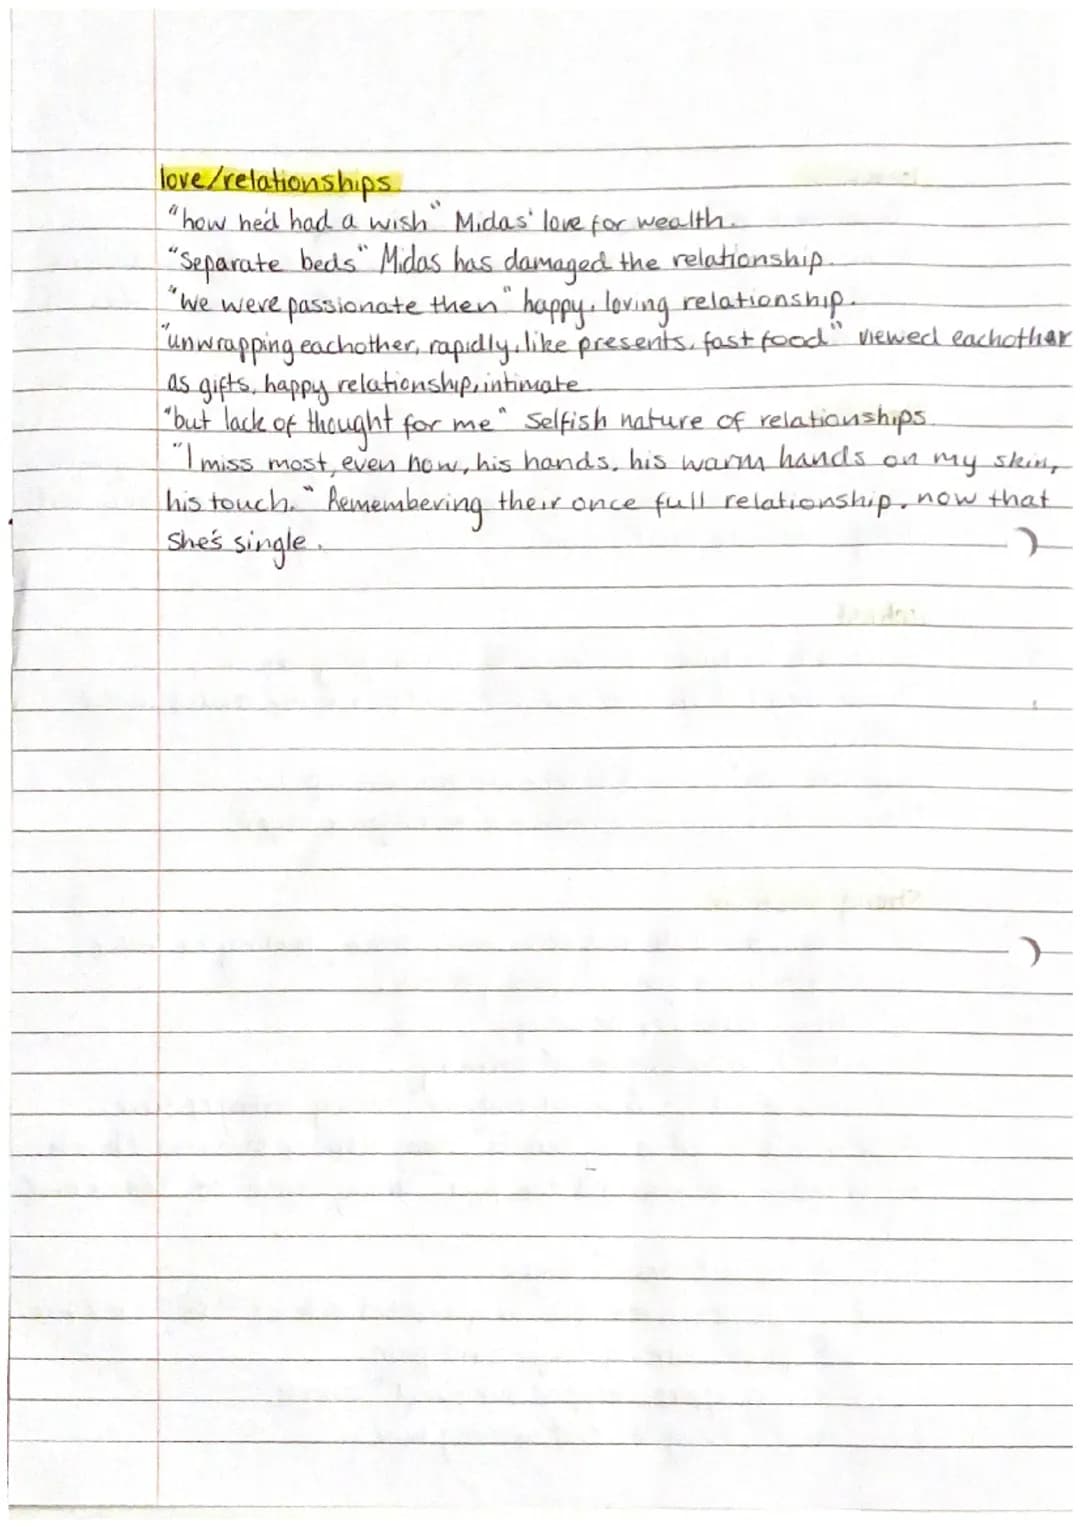 love/relationships
"how he'd had a wish" Midas' love for wealth.
"Separate beds" Midas has damaged the relationship.
"We were passionate then" happy, loving relationship.
"unwrapping eachother, rapidly, like presents, fast food" viewed eachother
as gifts, happy relationship, intimate.
"but lack of thought for me" Selfish nature of relationships.
"I miss most, even now, his hands, his warm hands on my skin,
his touch." Remembering their once full relationship, now that
She's single.